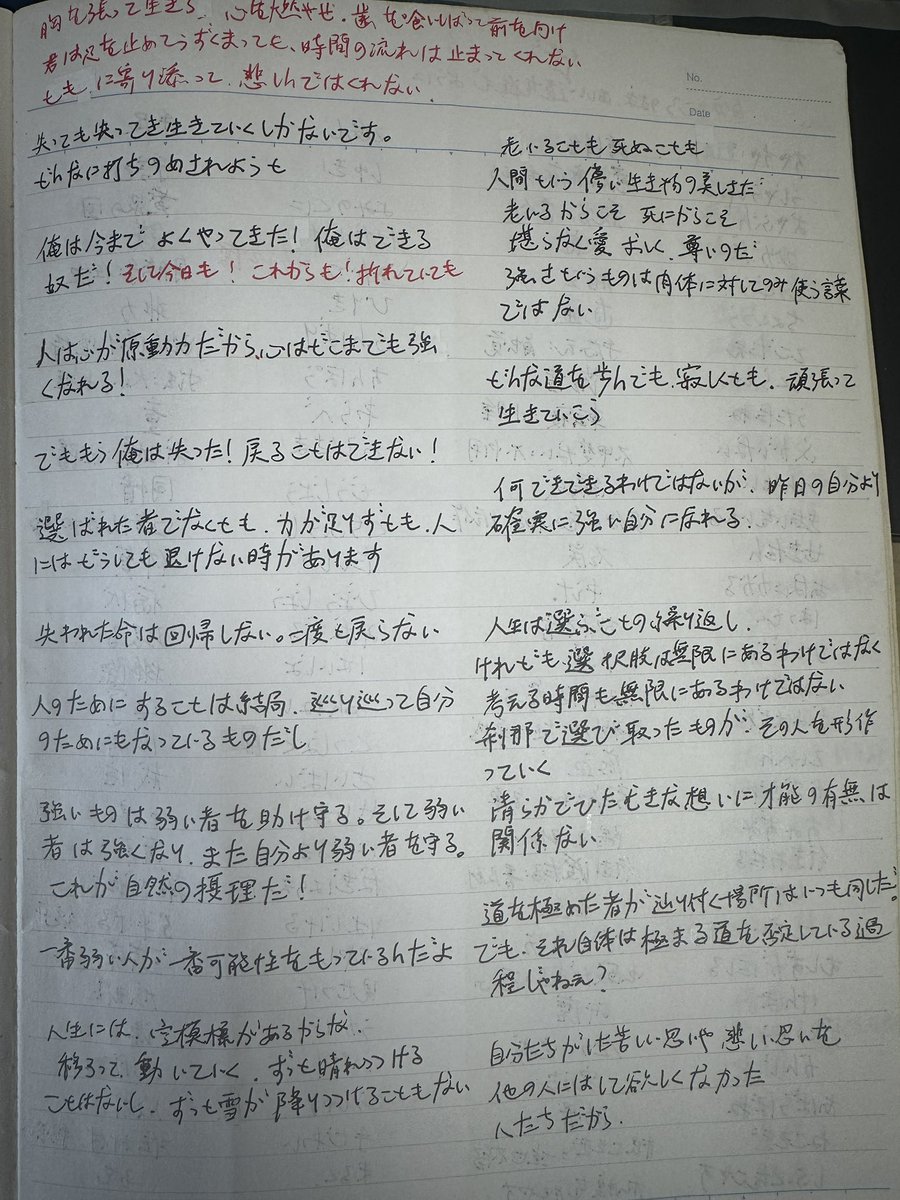 胸を張って生きろ、心を燃やせ、歯を喰いしばって前を向け
君は足を止めてうずくまっても、時間の流れは止まってくれない
ともに寄り添って、悲しんではくれない
No.
Date
失っても失っても生きていくしかないです。
どんなに打ちのめされようと
俺は今までよくやってきた!俺はできる
奴だ!そして今日も!これからも!折れていても
人は心が原動力だから、心はどこまでも強
くなれる!
でももう俺は失った!戻ることはできない!
選ばれた者でなくとも、力が足りずとも、人
にはどうしても退けない時があります
失われた命は回帰しない。二度と戻らない
人のためにすることは結局、巡り巡って自分
のためにもなっているものだし
強いものは弱い者を助け守る。そして弱い
者は強くなり、また自分より弱い者を守る。
これが自然の摂理だ!
一番弱い人が一番可能性をもっているんだよ
人生には、空模様があるからな、
移ろって、動いていく、ずっと晴れつづける
ことはないし、ずっと雪が降りつづけることもない
老いることも死ぬことも
人間という儚い生き物の美しさだ
老いるからこそ 死にからこそ
堪らなく愛おしく、尊いのだ
強さというものは肉体に対してのみ使う言葉
ではない
どんな道を歩んでも、寂しくとも、頑張って
生きていこう
何でもできるわけではないが、昨日の自分より
確実に強い自分になれる、
人生は選ぶことの繰り返し、
けれども、選択肢は無限にあるわけではなく
考える時間も無限にあるわけではない
刹那で選び取ったものが、その人を形作
っていく
清らかでひたむきな想いに才能の有無は
関係ない
道を極めた者が辿り付く場所はいつも同じだ。
でも、それ自体は極まる道を否定している過
程じゃねぇ?
自分たちがした苦しい思いや 悲しい思いを
他の人にはして欲しくなかった
人たちだから、